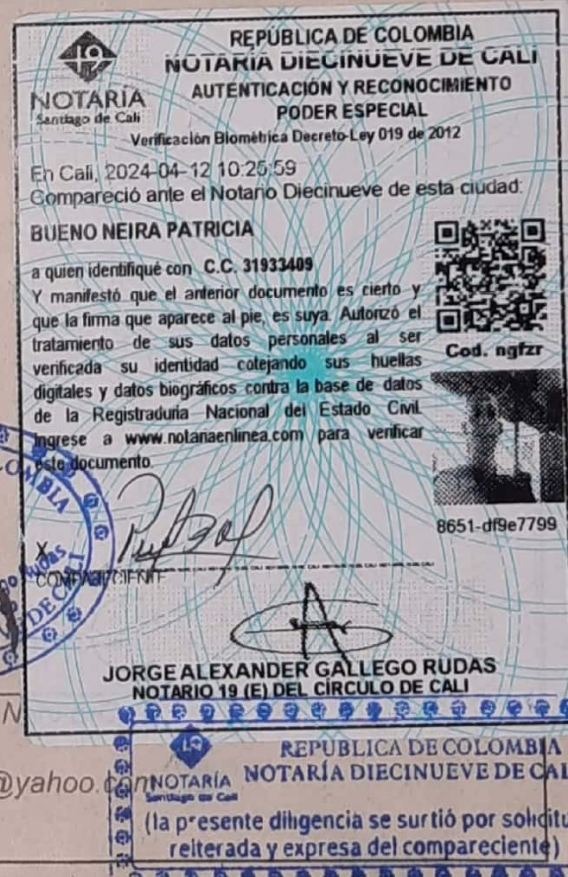 REPÚBLICA DE COLOMBIA
NOTARÍA DIECINUEVE DE CALI
NOTARÍA
Santiago de Cali
AUTENTICACIÓN Y RECONOCIMIENTO
PODER ESPECIAL
Verificación Biométrica Decreto-Ley 019 de 2012
En Cali, 2024-04-12 10:25:59
Compareció ante el Notario Diecinueve de esta ciudad:
BUENO NEIRA PATRICIA
a quien identifiqué con C.C. 31933409
Y manifestó que el anterior documento es cierto y
que la firma que aparece al pie, es suya. Autorizó el
tratamiento de sus datos personales al ser
verificada su identidad cotejando sus huellas
digitales y datos biográficos contra la base de datos
de la Registraduría Nacional del Estado Civil.
Ingrese a www.notariaenlinea.com para verificar
este documento.
Cod. ngfzr
8651-df9e7799
X
COMPARECIENTE
JORGE ALEXANDER GALLEGO RUDAS
NOTARIO 19 (E) DEL CÍRCULO DE CALI
N
@yahoo.com
NOTARÍA
Santiago de Cali
REPÚBLICA DE COLOMBIA
NOTARÍA DIECINUEVE DE CAL
(la presente diligencia se surtió por solicitu
reiterada y expresa del compareciente)